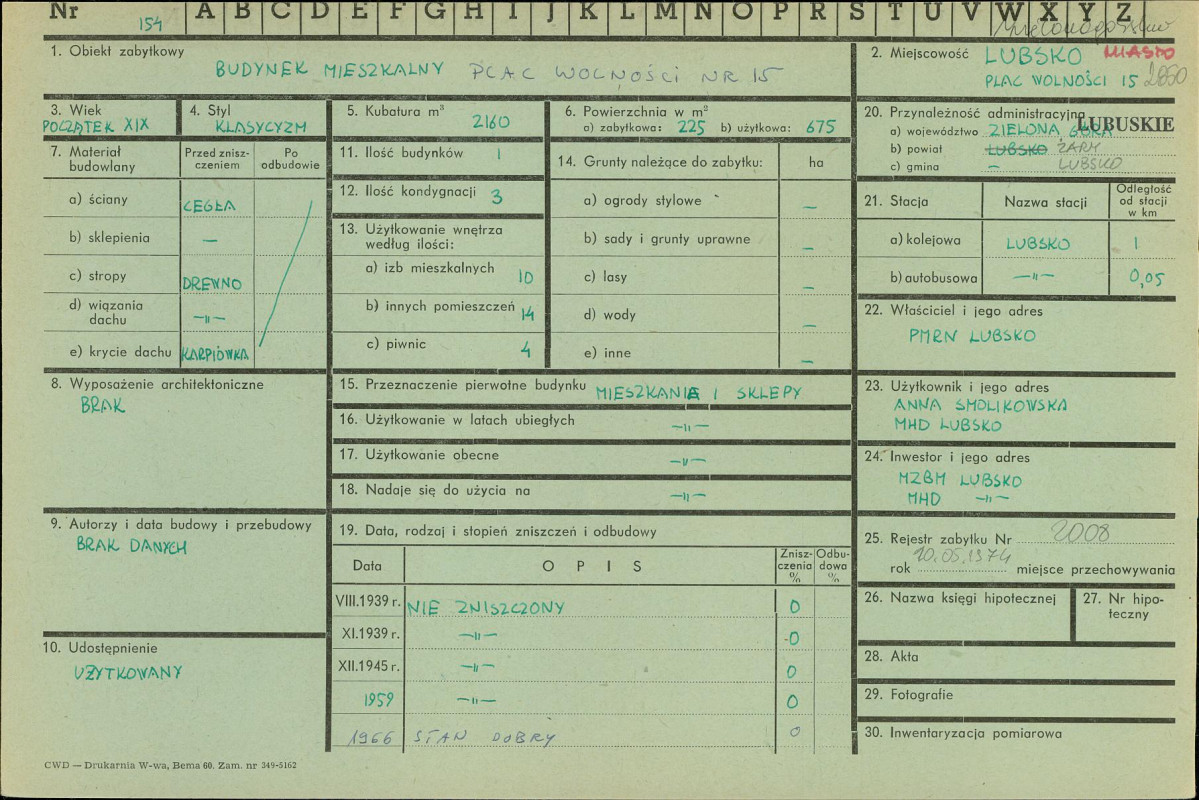 Nr 154 A B C D E F G H I J K L M N O P R S T U V W X Y Z
1. Obiekt zabytkowy
BUDYNEK MIESZKALNY PLAC WOLNOŚCI NR 15
2. Miejscowość LUBSKO MIASTO
PLAC WOLNOŚCI 15
3. Wiek
POCZĄTEK XIX
4. Styl
KLASYCYZM
5. Kubatura m³
2160
6. Powierzchnia w m²
a) zabytkowa: 225 b) użytkowa: 675
20. Przynależność administracyjna
LUBUSKIE
a) województwo ZIELONA GÓRA
b) powiat LUBSKO ŻARY
c) gmina — LUBSKO
7. Materiał budowlany
Przed zniszczeniem
Po odbudowie
a) ściany CEGŁA
b) sklepienia —
c) stropy DREWNO
d) wiązania dachu —„—
e) krycie dachu KARPIÓWKA
11. Ilość budynków 1
12. Ilość kondygnacji 3
13. Użytkowanie wnętrza według ilości:
a) izb mieszkalnych 10
b) innych pomieszczeń 14
c) piwnic 4
14. Grunty należące do zabytku: ha
a) ogrody stylowe —
b) sady i grunty uprawne —
c) lasy —
d) wody —
e) inne —
21. Stacja Nazwa stacji Odległość od stacji w km
a) kolejowa LUBSKO 1
b) autobusowa —„— 0,05
22. Właściciel i jego adres
PMRN LUBSKO
8. Wyposażenie architektoniczne
BRAK
15. Przeznaczenie pierwotne budynku MIESZKANIA I SKLEPY
16. Użytkowanie w latach ubiegłych —„—
17. Użytkowanie obecne —„—
18. Nadaje się do użycia na —„—
23. Użytkownik i jego adres
ANNA SMOLIKOWSKA
MHD LUBSKO
24. Inwestor i jego adres
MZBM LUBSKO
MHD —„—
9. Autorzy i data budowy i przebudowy
BRAK DANYCH
10. Udostępnienie
UŻYTKOWANY
19. Data, rodzaj i stopień zniszczeń i odbudowy
Data O P I S Zniszczenia % Odbudowa %
VIII.1939 r. NIE ZNISZCZONY 0
XI.1939 r. —„— 0
XII.1945 r. —„— 0
1959 —„— 0
1966 STAN DOBRY 0
25. Rejestr zabytku Nr 2008
rok 10.05.1974 miejsce przechowywania
26. Nazwa księgi hipotecznej
27. Nr hipoteczny
28. Akta
29. Fotografie
30. Inwentaryzacja pomiarowa
CWD — Drukarnia W-wa, Bema 60. Zam. nr 349-5162